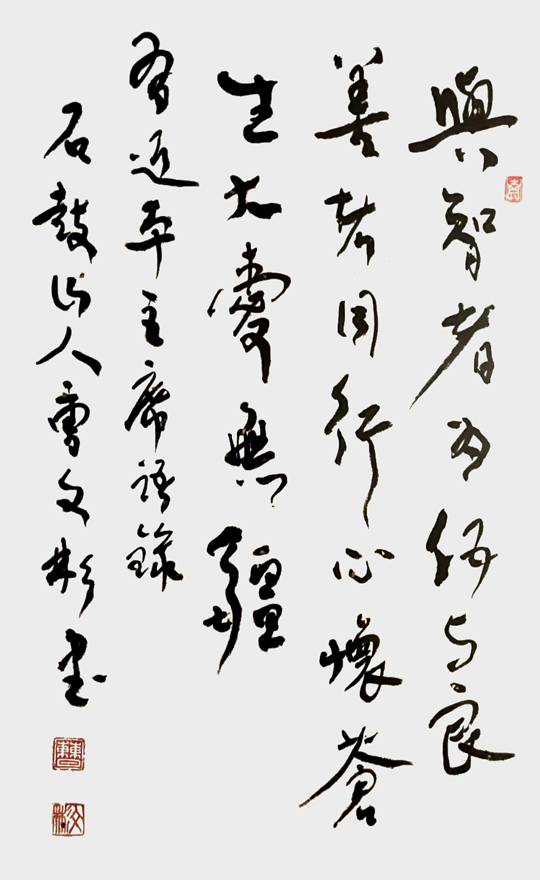 與智者为伍与良
善者同行心懷蒼
生大愛無疆
習近平主席語錄
石鼓山人曹文彬書